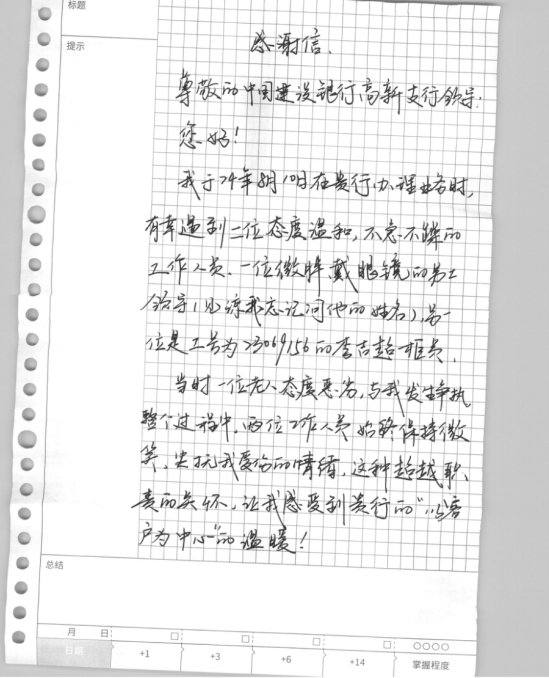 标题
提示
感谢信.
尊敬的中国建设银行高新支行领导:
您好!
我于24年8月10日在贵行办理业务时,
有幸遇到二位态度温和,不急不躁的
工作人员.一位微胖戴眼镜的男士
领导(见谅我忘记问他的姓名),另一
位是工号为23069156的李吉超柜员.
当时一位老人态度恶劣,与我发生争执,
整个过程中,两位工作人员始终保持微
笑,安抚我受伤的情绪,这种超越职
责的关怀,让我感受到贵行的“以客
户为中心”的温暖!
总结
月 日:
日期 +1 +3 +6 +14 掌握程度